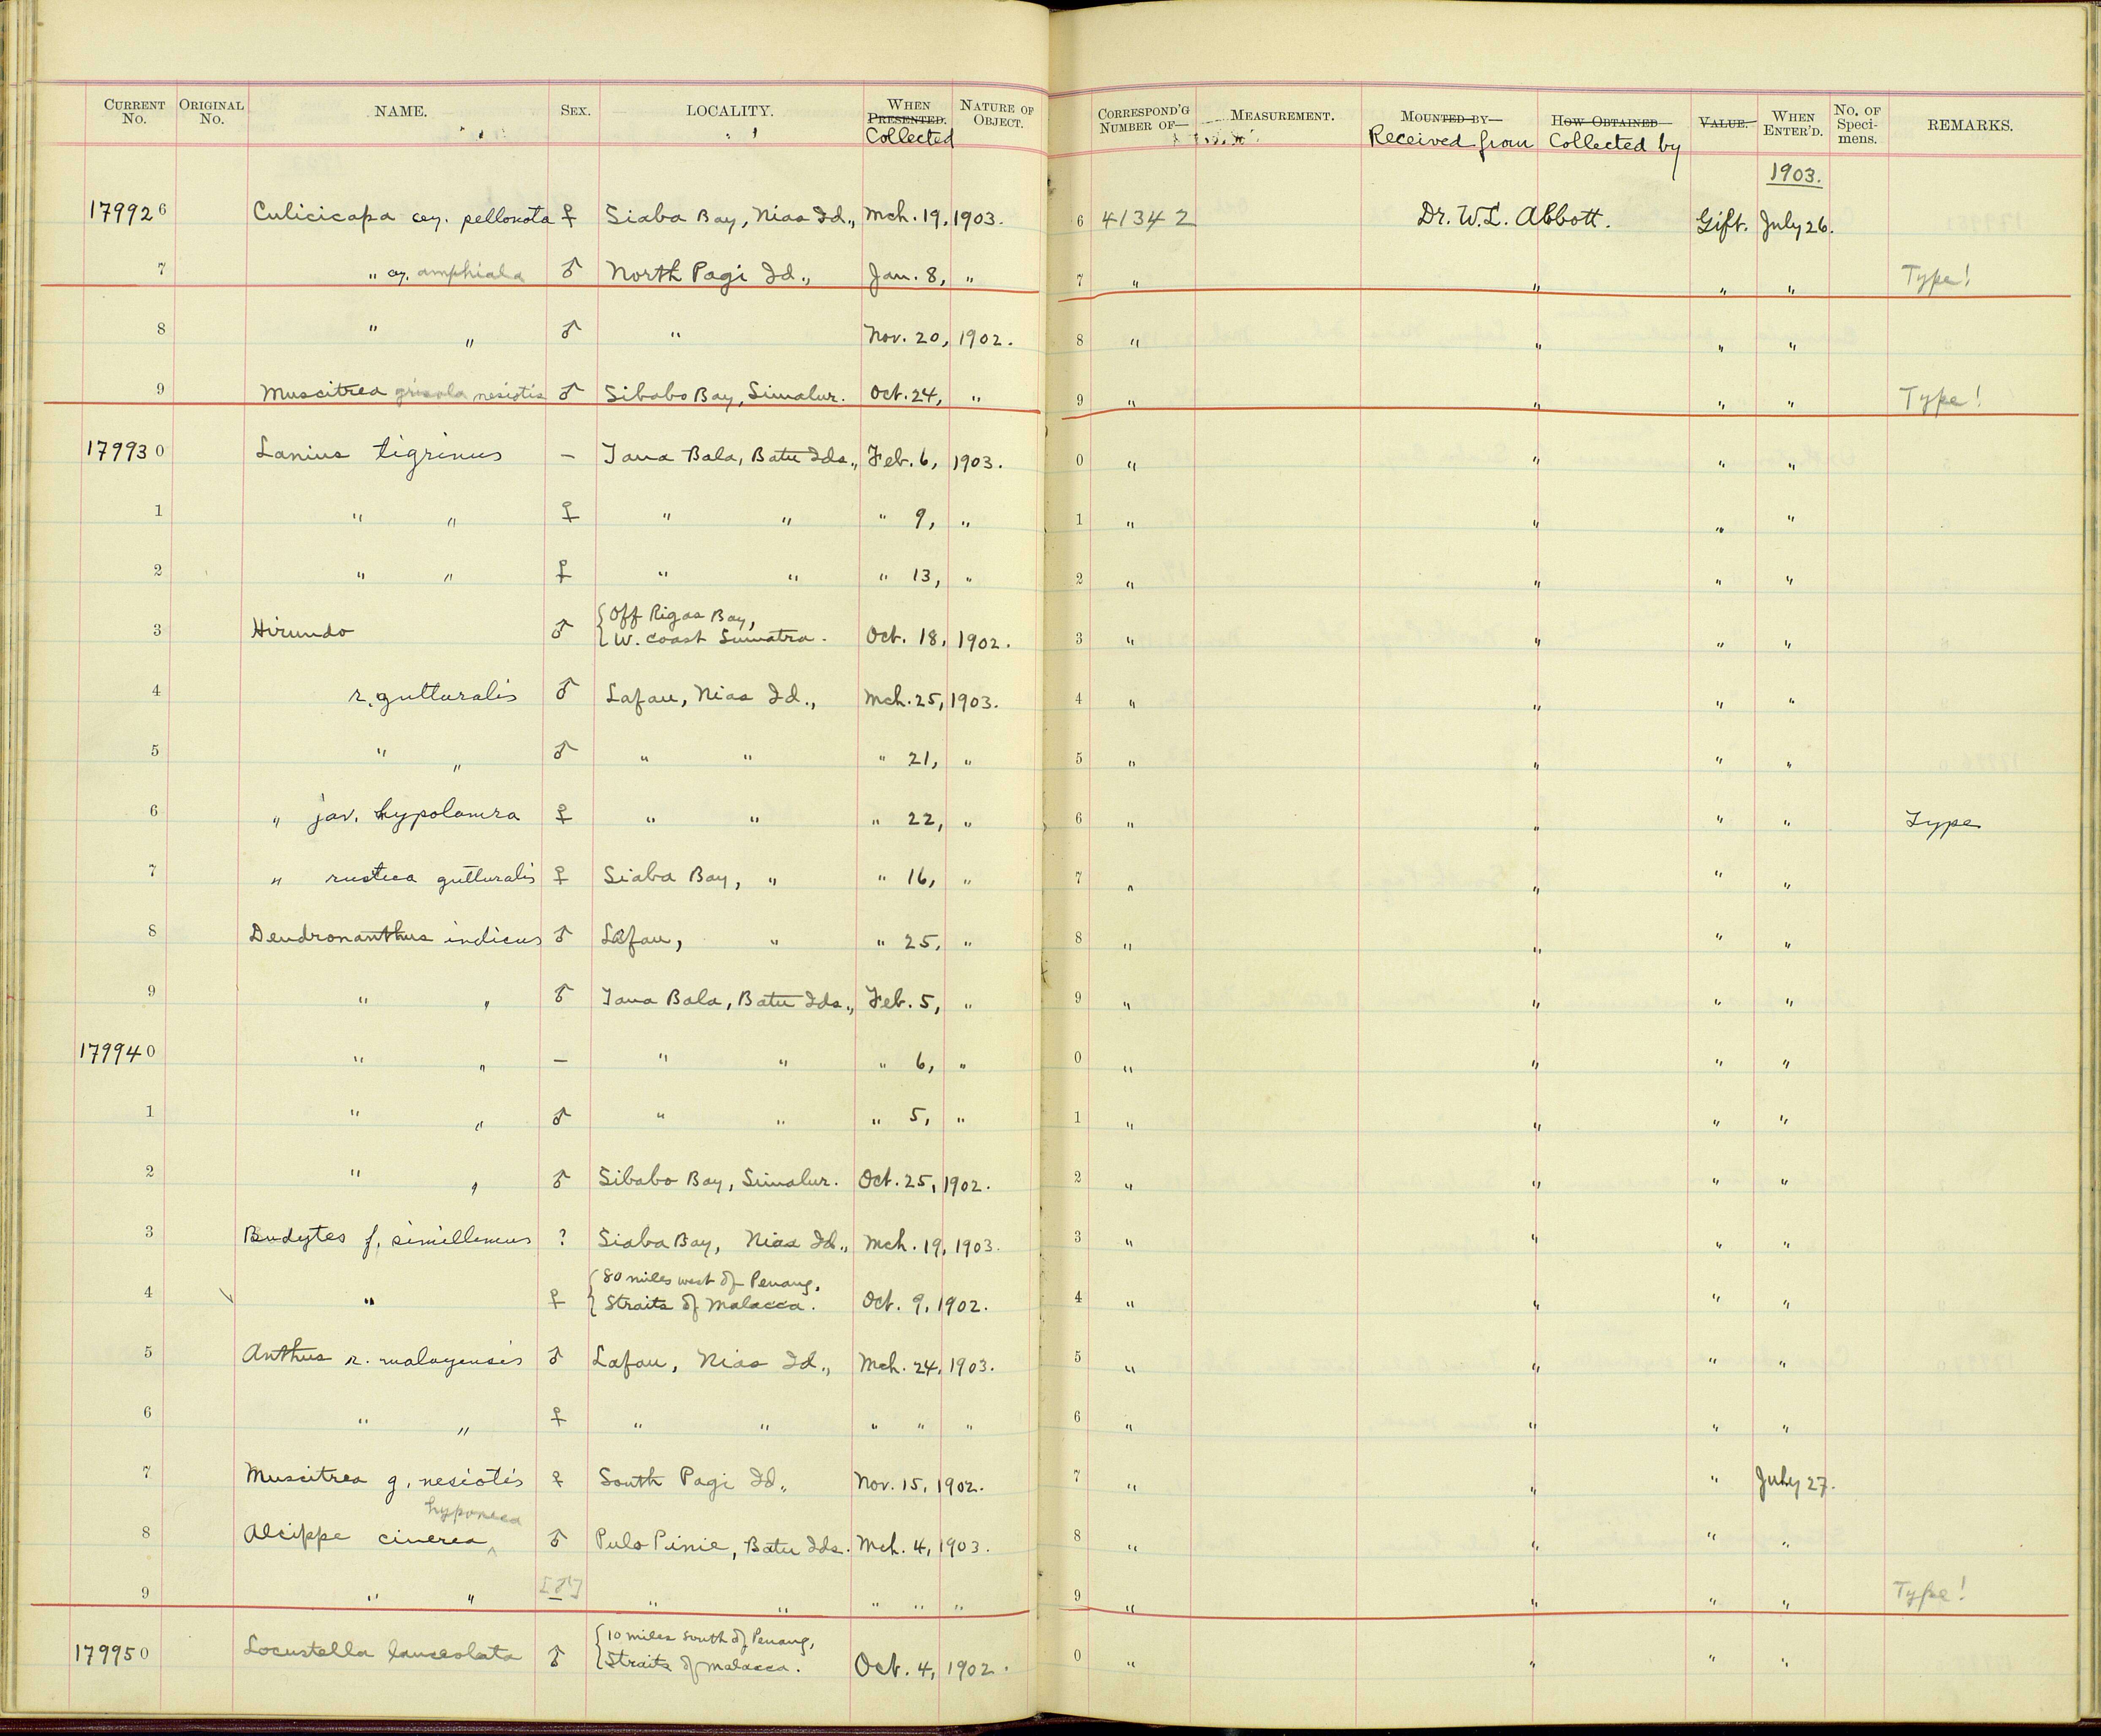 CURRENT No. ORIGINAL No. NAME. SEX. LOCALITY. WHEN PRESENTED. Collected NATURE OF OBJECT. CORRESPOND'G NUMBER OF— MEASUREMENT. MOUNTED BY— Received from HOW OBTAINED Collected by VALUE. WHEN ENTER'D. No. OF Speci-mens. REMARKS.
1903.
179926 Culicicapa cey. pellonota ♀ Siaba Bay, Nias Id., Mch. 19, 1903. 6 41342 Dr. W. L. Abbott. Gift. July 26.
7 " cey. amphiala ♂ North Pagi Id., Jan. 8, " 7 " " " " Type!
8 " " ♂ " Nov. 20, 1902. 8 " " " "
9 Muscitrea grisola nesiotis ♂ Sibabo Bay, Simalur. Oct. 24, " 9 " " " " Type!
179930 Lanius tigrinus – Tana Bala, Batu Ids., Feb. 6, 1903. 0 " " " "
1 " " ♀ " " " 9, " 1 " " " "
2 " " ♀ " " " 13, " 2 " " " "
3 Hirundo ♂ {Off Rigas Bay,
W. coast Sumatra. Oct. 18, 1902. 3 " " " "
4 r. gutturalis ♂ Lafau, Nias Id., Mch. 25, 1903. 4 " " " "
5 " " ♂ " " " 21, " 5 " " " "
6 " jav. hypolamra ♀ " " " 22, " 6 " " " " Type
7 " rustica gutturalis ♀ Siaba Bay, " " 16, " 7 " " " "
8 Dendronanthus indicus ♂ Lafau, " " 25, " 8 " " " "
9 " " ♂ Tana Bala, Batu Ids., Feb. 5, " 9 " " " "
179940 " " – " " " 6, " 0 " " " "
1 " " ♂ " " " 5, " 1 " " " "
2 " " ♂ Sibabo Bay, Simalur. Oct. 25, 1902. 2 " " " "
3 Budytes f. simillimus ? Siaba Bay, Nias Id., Mch. 19, 1903. 3 " " " "
4 " ♀ {80 miles west of Penang,
Straits of Malacca. Oct. 9, 1902. 4 " " " "
5 Anthus r. malayensis ♂ Lafau, Nias Id., Mch. 24, 1903. 5 " " " "
6 " " ♀ " " " " " 6 " " " "
7 Muscitrea g. nesiotis ♀ South Pagi Id., Nov. 15, 1902. 7 " " " July 27.
hyponeca
8 Alcippe cinerea ^ ♂ Pulo Pinie, Batu Ids. Mch. 4, 1903. 8 " " " "
9 " " [♂] " " " " " 9 " " " " Type!
179950 Locustella lanceolata ♂ {10 miles south of Penang,
Straits of Malacca. Oct. 4, 1902. 0 " " " "